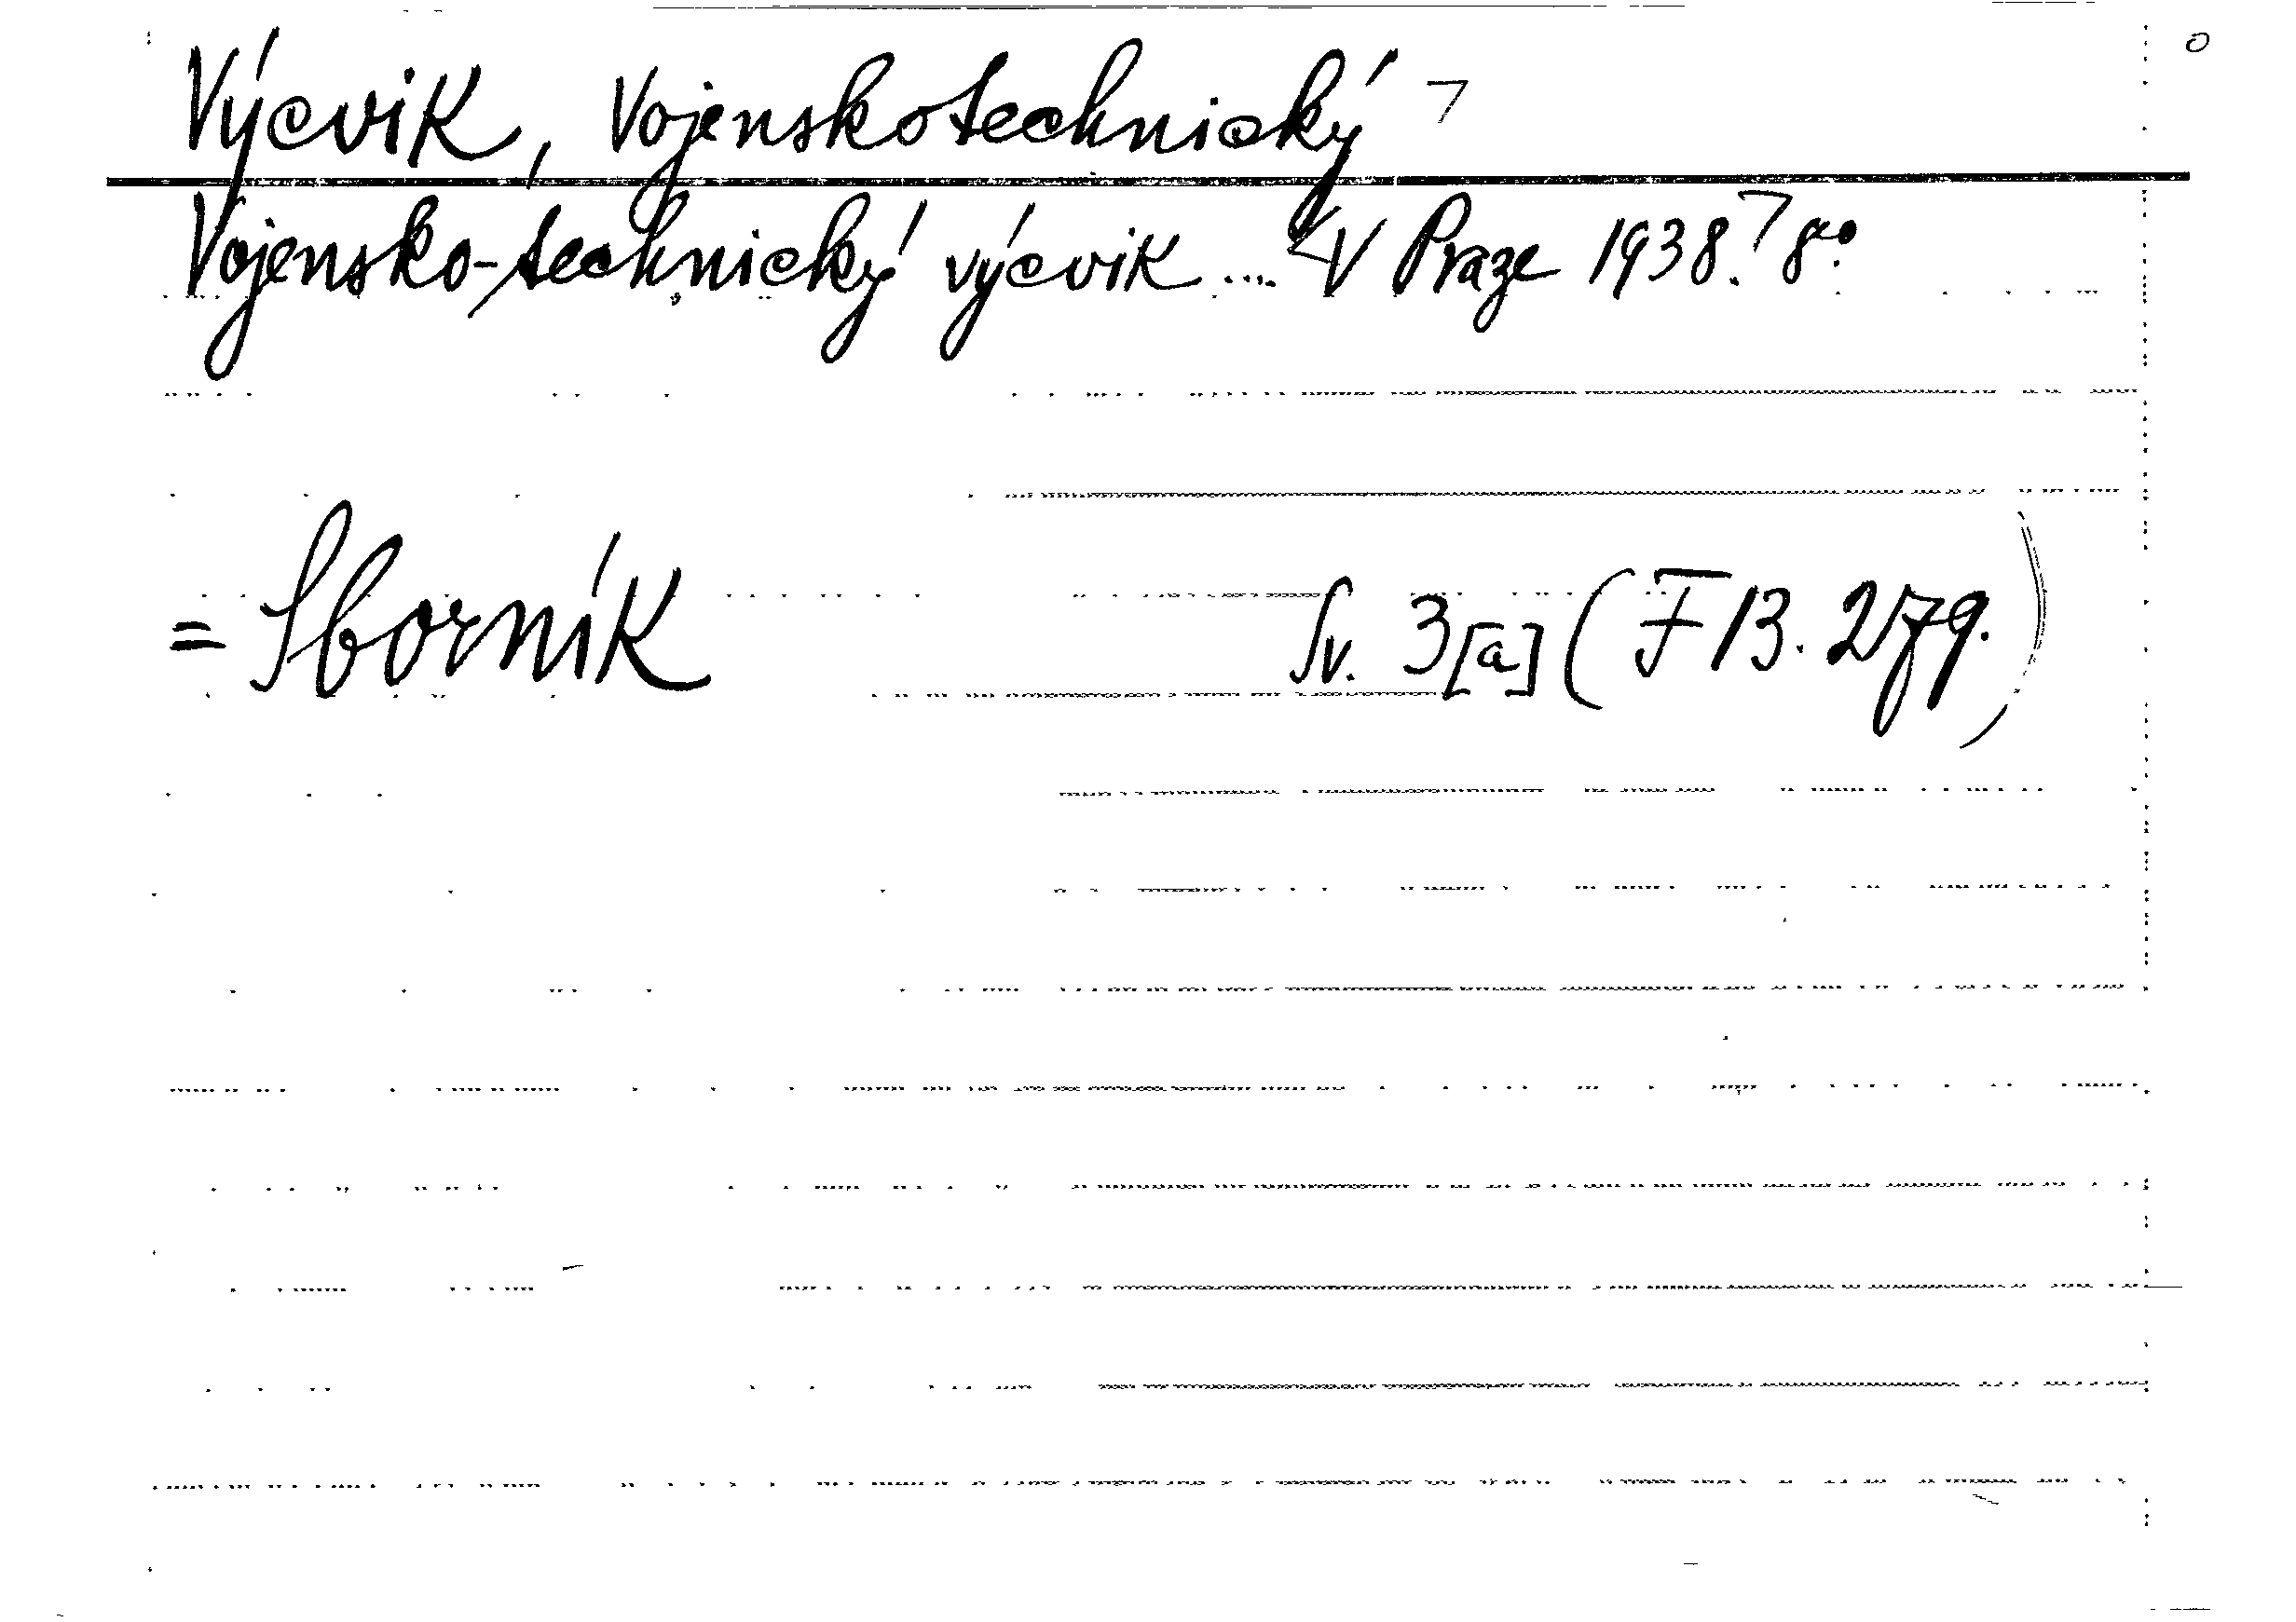 Výcvik, Vojenskotechnický
Vojensko-technický výcvik ... V Praze 1938. 8°.
= Sborník Sv. 3[a] (F 13. 279.)